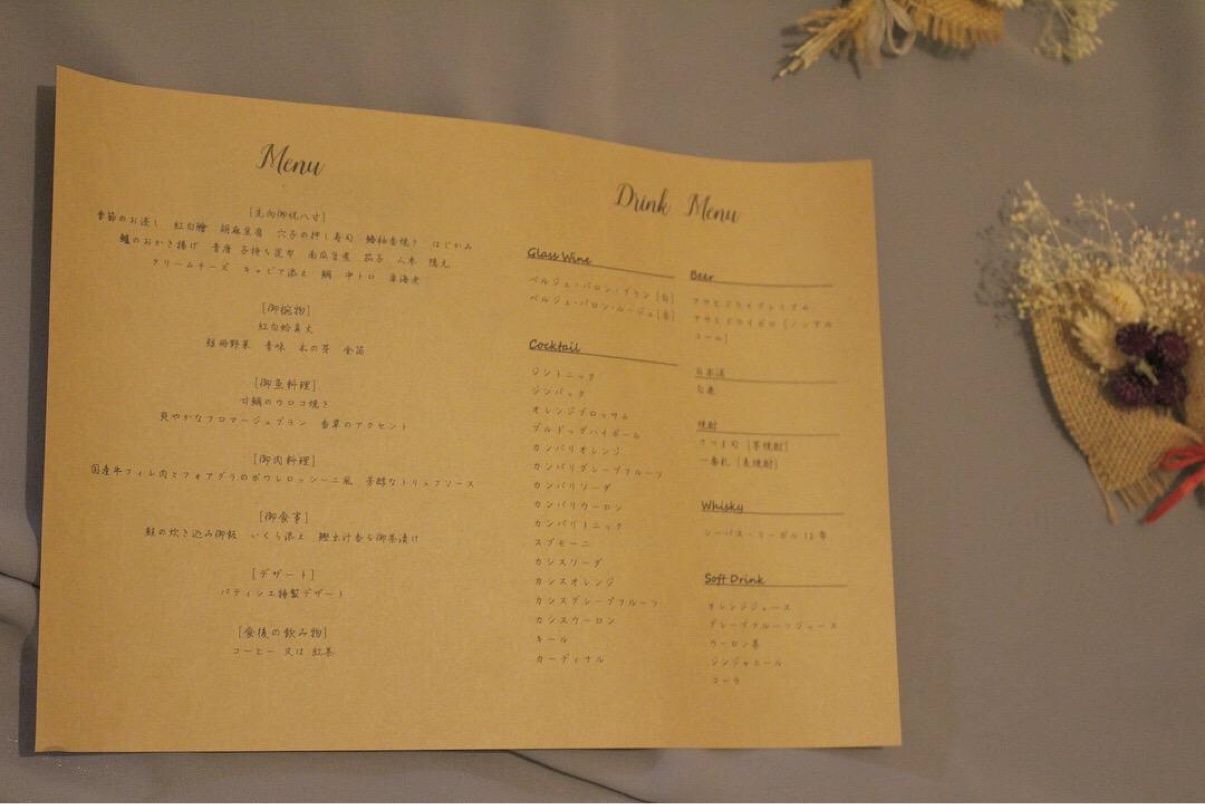 Menu
季節のお浸し 紅白膾 胡麻豆腐 穴子の押し寿司 柚香焼き はじかみ
のおかき揚げ 子持ち昆布 南瓜旨煮 茄子 人参 隠元
クリームチーズ キャビア添え 鯛 中トロ
[御椀物]
紅白 真丈
短冊野菜 青味 木の芽
[御魚料理]
甘鯛のウロコ焼き
爽やかなフロマージュブラン 香草のアクセント
[御肉料理]
国産牛フィレ肉とフォアグラのポワレロッシーニ風 芳醇なトリュフソース
[御食事]
鮭の炊き込み御飯 いくら添え 鰹出汁香る御茶漬け
[デザート]
パティシエ特製デザート
[食後の飲み物]
コーヒー 又は 紅茶
Drink Menu
Glass Wine
ベルジェ・バロン・ブラン [白]
ベルジェ・バロン・ルージュ[赤]
Cocktail
ジントニック
ジンバック
オレンジブロッサム
ブルドッグハイボール
カンパリオレンジ
カンパリグレープフルーツ
カンパリソーダ
カンパリウーロン
カンパリトニック
スプモーニ
カシスソーダ
カシスオレンジ
カシスグレープフルーツ
カシスウーロン
キール
カーディナル
Beer
アサヒドライプレミアム
アサヒドライゼロ [ノンアル
コール]
日本酒
焼酎
さつま司 [芋焼酎]
一番札 [麦焼酎]
Whisky
シーバス・リーガル 12 年
Soft Drink
オレンジジュース
グレープフルーツジュース
ウーロン茶
ジンジャエール
コーラ